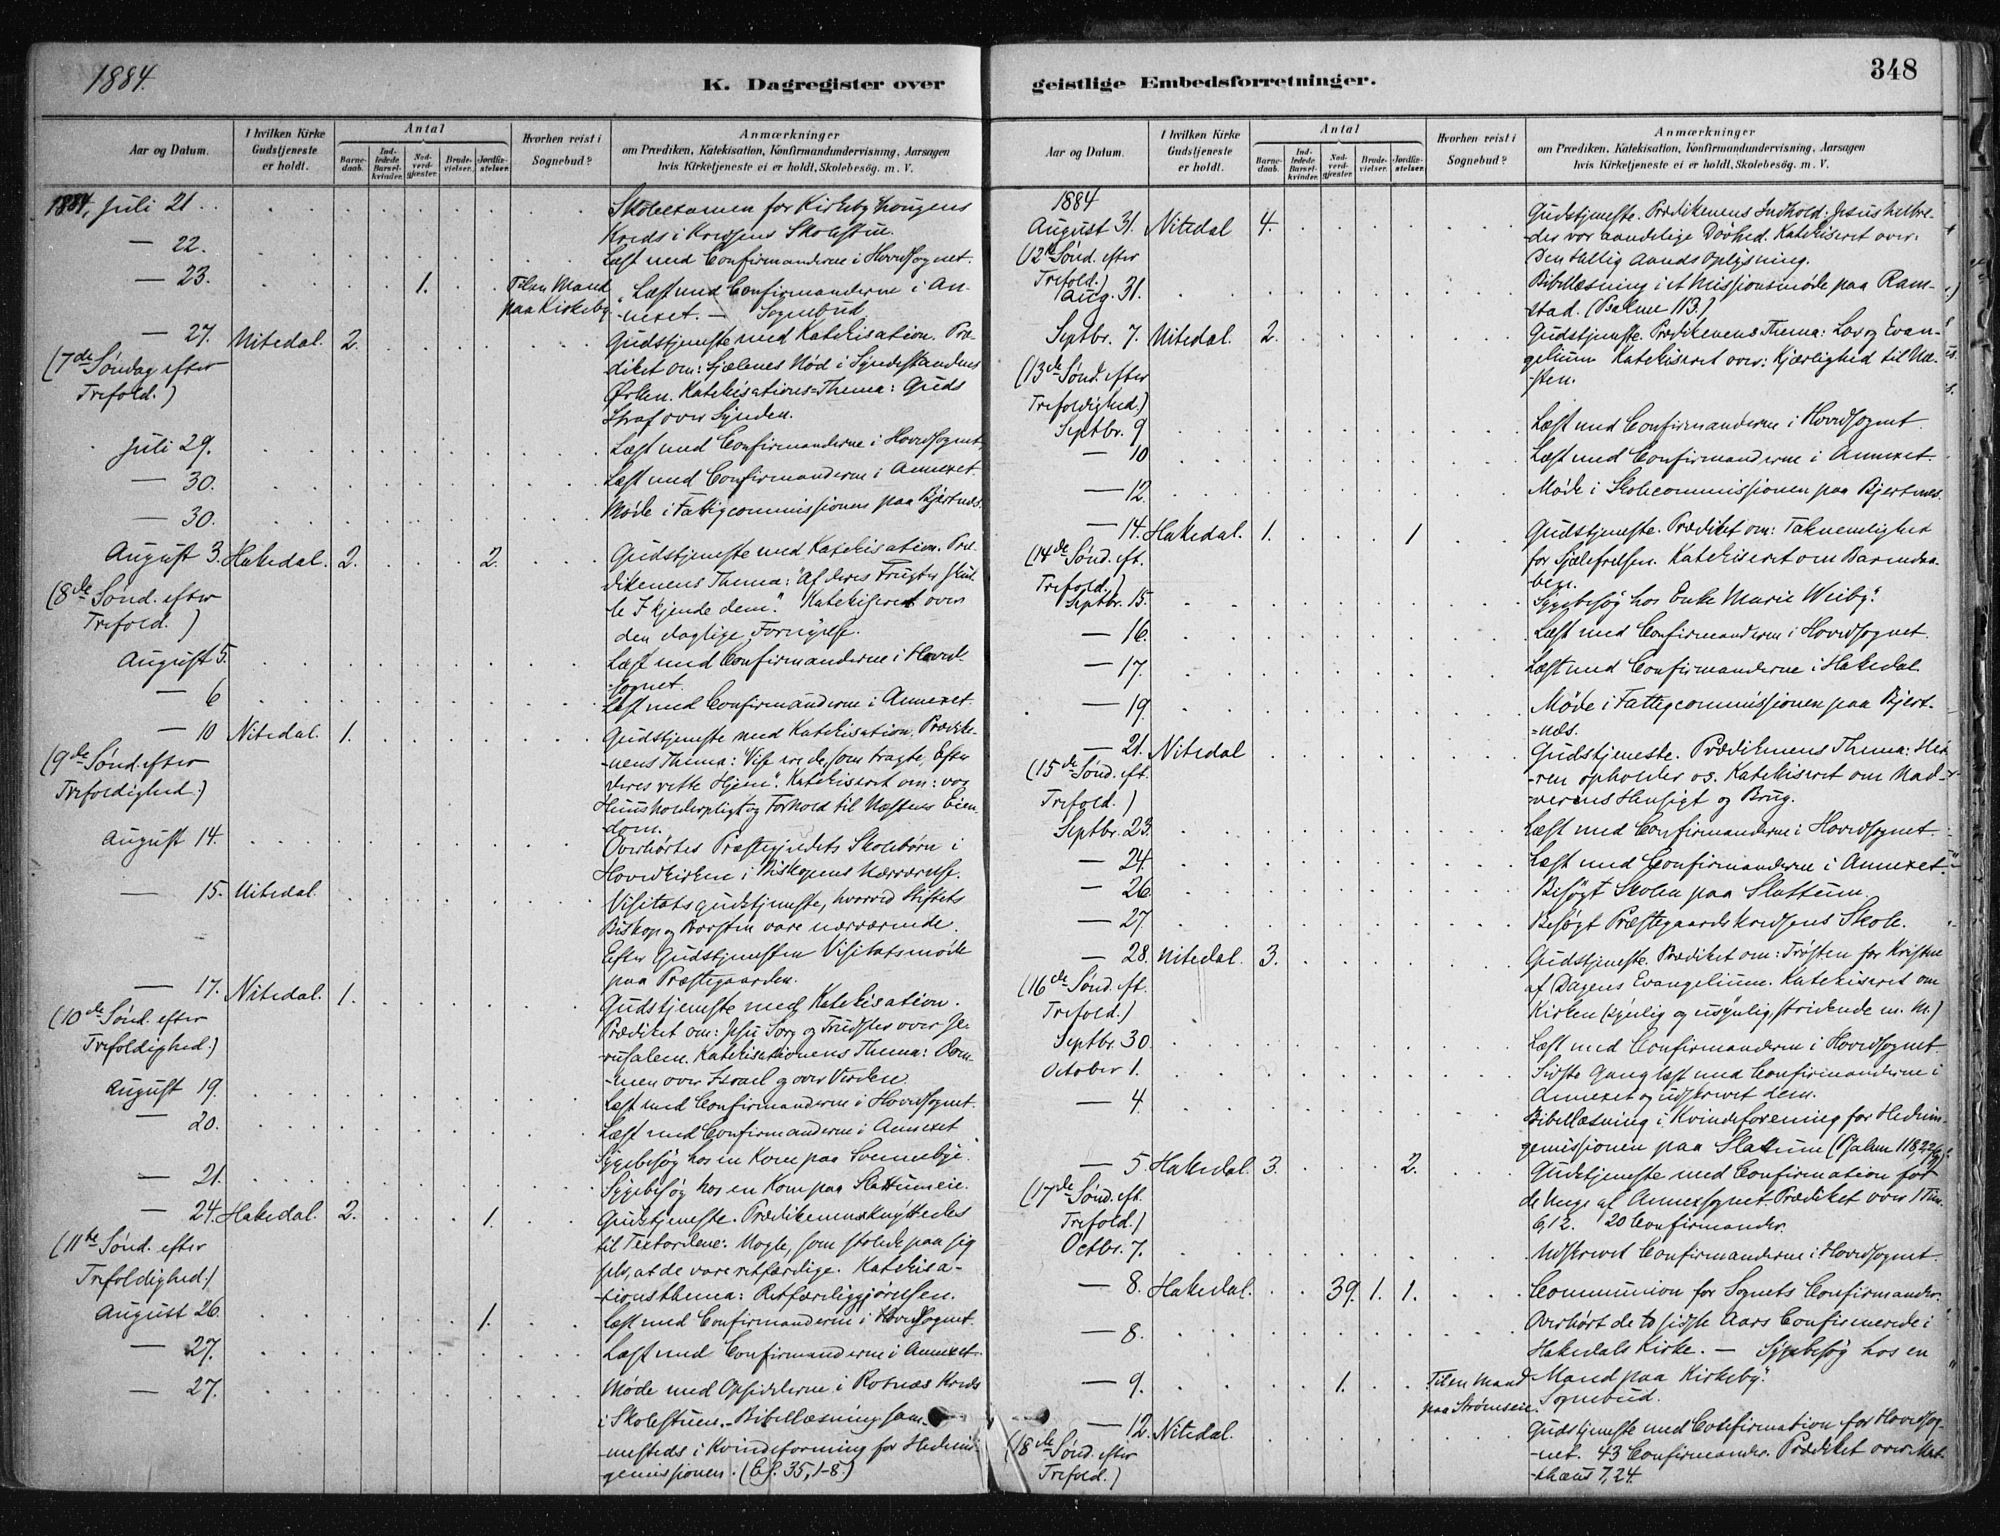 1884.
K. Dagregister over
Aar og Datum.
I hvilken Kirke Gudstjeneste er holdt.
Antal
Barnedaab.
Indledede Barselkvinder.
Nadverdgjæster.
Brudevielser.
Jordfæstelser.
Hvorhen reist i Sognebud?
Anmærkninger
om Prædiken, Katekisation, Konfirmandundervisning, Aarsagen
hvis Kirketjeneste ei er holdt, Skolebesøg. m. V.
1884, Juli 21.
Skoleexamen for Kirkeby Lougens
Kreds i Kredsens Skolestue.
— 22.
Læst med Confirmanderne i Hovedsognet.
— 23. 1. Til en Mand
paa Kirkeby.
Læst med Confirmanderne i An-
-nexet. — Sognebud.
— 27. Nitedal. 2.
(7de Søndag efter
Trefold.)
Gudstjeneste med Katekisation. Præ-
diket om: Sjælenes Nød i Syndestandens
Ørken. Katekisations-Thema: Guds
Straf over Synden.
Juli 29.
Læst med Confirmanderne i Hovedsognet.
— 30.
Læst med Confirmanderne i Annexet.
— 30.
Møde i Fattigcommissionen paa Bjertnæs.
August 3. Hakedal. 2. 2.
(8de Sønd. efter
Trefold.)
Gudstjeneste med Katekisation. Præ-
dikenens Thema: "Af deres Frugter skul-
le I kjende dem." Katekiseret over
den daglige Fornyelse.
August 5.
Læst med Confirmanderne i Hoved-
-sognet.
— 6
Læst med Confirmanderne i Annexet.
— 10 Nitedal. 1.
(9de Sønd. efter
Trefoldighed.)
Gudstjeneste med Katekisation. Prædike-
-nens Thema: Vise ere de, som tragte Efter
deres rette Hjem". Katekiseret om: vor
Huusholderpligt og Forhold til Næstens Eien-
dom.
August 14.
Overhørtes Præstegjeldets Skolebørn i
Hovedkirken i Biskopens Nærværelse.
— 15. Nitedal.
Visitatsgudstjeneste, hvorved Stiftets
Biskop og Provsten vare nærværende.
Efter Gudstjenesten Visitatsmøde
paa Præstegaarden.
— 17. Nitedal. 1.
(10de Sønd. efter
Trefoldighed.)
Gudstjeneste med Katekisation.
Prædiket om: Jesu Sorg og Trudsler over Je-
-rusalem. Katekisationens Thema: Dom-
-men over Israel og over Verden.
August 19.
Læst med Confirmanderne i Hovedsognet.
— 20.
Læst med Confirmanderne i Annexet
Sygebesøg hos en Kone paa Svennebye.
— 21.
Sygebesøg hos en Kone paa Slattumeie.
— 24. Hakedal. 2. 1.
(11te Sønd. efter
Trefoldighed.)
Gudstjeneste. Prædikenen knyttedes
til Textordene: Nogle, som stolede paa sig
selv, at de vare retfærdige. Katekisa-
-tionsthema: Retfærdiggjørelsen.
August 26. 1.
Læst med Confirmanderne i Hovedsognet.
— 27.
Læst med Confirmanderne i Annexet.
— 27.
Møde med Opsiderne i Rotnæs Kreds
i Skolestuen. – Bibellæsning sam-
-mesteds i Kvindeforening for Hednin-
gemissionen. (Es. 35, 1-8.)
geistlige Embedsforretninger.
348
Aar og Datum.
I hvilken Kirke Gudstjeneste er holdt.
Antal
Barnedaab.
Indledede Barselkvinder.
Nadverdgjæster.
Brudevielser.
Jordfæstelser.
Hvorhen reist i Sognebud?
Anmærkninger
om Prædiken, Katekisation, Konfirmandundervisning, Aarsagen
hvis Kirketjeneste ei er holdt, Skolebesøg. m. V.
1884
August 31. Nitedal 4.
(12te Sønd. efter
Trefold.)
Gudstjeneste. Prædikenens Indhold: Jesus helbre-
-der vor aandelige Døvhed. Katekiseret over:
Den Hellig Aands Oplysning.
Aug. 31.
Bibellæsning i et Missionsmøde paa Ram-
stad. (Psalme 113.)
Septbr. 7. Nitedal 2.
(13de Sønd. efter
Trefoldighed.)
Gudstjeneste. Prædikenens Thema: Lov og Evan-
gelium. Katekiseret over: Kjærlighed til Næ-
-sten.
Septbr. 9
Læst med Confirmanderne i Hovedsognet.
— 10
Læst med Confirmanderne i Annexet.
— 12.
Møde i Skolecommissionen paa Bjertnes.
— 14. Hakedal. 1. 1
(14de Sønd. eft.
Trefold.)
Gudstjeneste. Prædiket om: Taknemlighed
for Sjælefrelsen. Katekiseret om Barnedaa-
ben.
Septbr. 15.
Sygebesøg hos Enke Marie Weiby.
— 16.
Læst med Confirmanderne i Hovedsognet.
— 17.
Læst med Confirmanderne i Hakedal.
— 19.
Møde i Fattigcommissionen paa Bjert-
-næs.
— 21. Nitedal
(15de Sønd. eft.
Trefold.)
Gudstjeneste. Prædikenens Thema: Her-
-ren opholder os. Katekiseret om Nad-
-verens Hensigt og Brug.
Septbr. 23.
Læst med Confirmanderne i Hovedsognet.
— 24.
Læst med Confirmanderne i Annexet.
— 26.
Besøgt Skolen paa Slattum.
— 27.
Besøgt Præstegaardskredsens Skole.
— 28. Nitedal. 3.
(16de Sønd. eft.
Trefold.)
Gudstjeneste. Prædiket om: Trøsten for Kristne
af Dagens Evangelium. Katekiseret om
Kirken (synlig og usynlig, stridende m. M.)
Septbr. 30.
Læst med Confirmanderne i Hovedsognet.
October 1.
Sidste Gang læst med Confirmanderne i
Annexet og udskrevet dem.
— 4.
Bibellæsning i Kvindeforening for Hednin-
gemissionen paa Slattum (Psalm 118,22 fg).
— 5. Hakedal. 3. 2.
(17de Sønd. eft.
Trefold.)
Gudstjeneste med Confirmation for
de Unge af Annexsognet. Prædiket over 1 Tim.
6,12. 20 Confirmander.
Octbr. 7.
Udskrevet Confirmanderne i Hovedsognet.
— 8. Hakedal. 39. 1. 1.
Communion for Sognets Confirmander.
— 8.
Overhørt de to sidste Aars Confirmerede i
Hakedals Kirke. — Sygebesøg hos en
Mand paa Kirkeby.
— 9. 1. Til en Mand
paa Strømseie.
Sognebud.
— 12. Nitedal.
(18de Sønd. efter
Trefold.)
Gudstjeneste med Confirmation for Hovedsog-
net. 43 Confirmander. Prædiket over Mat-
-thæus 7,24.